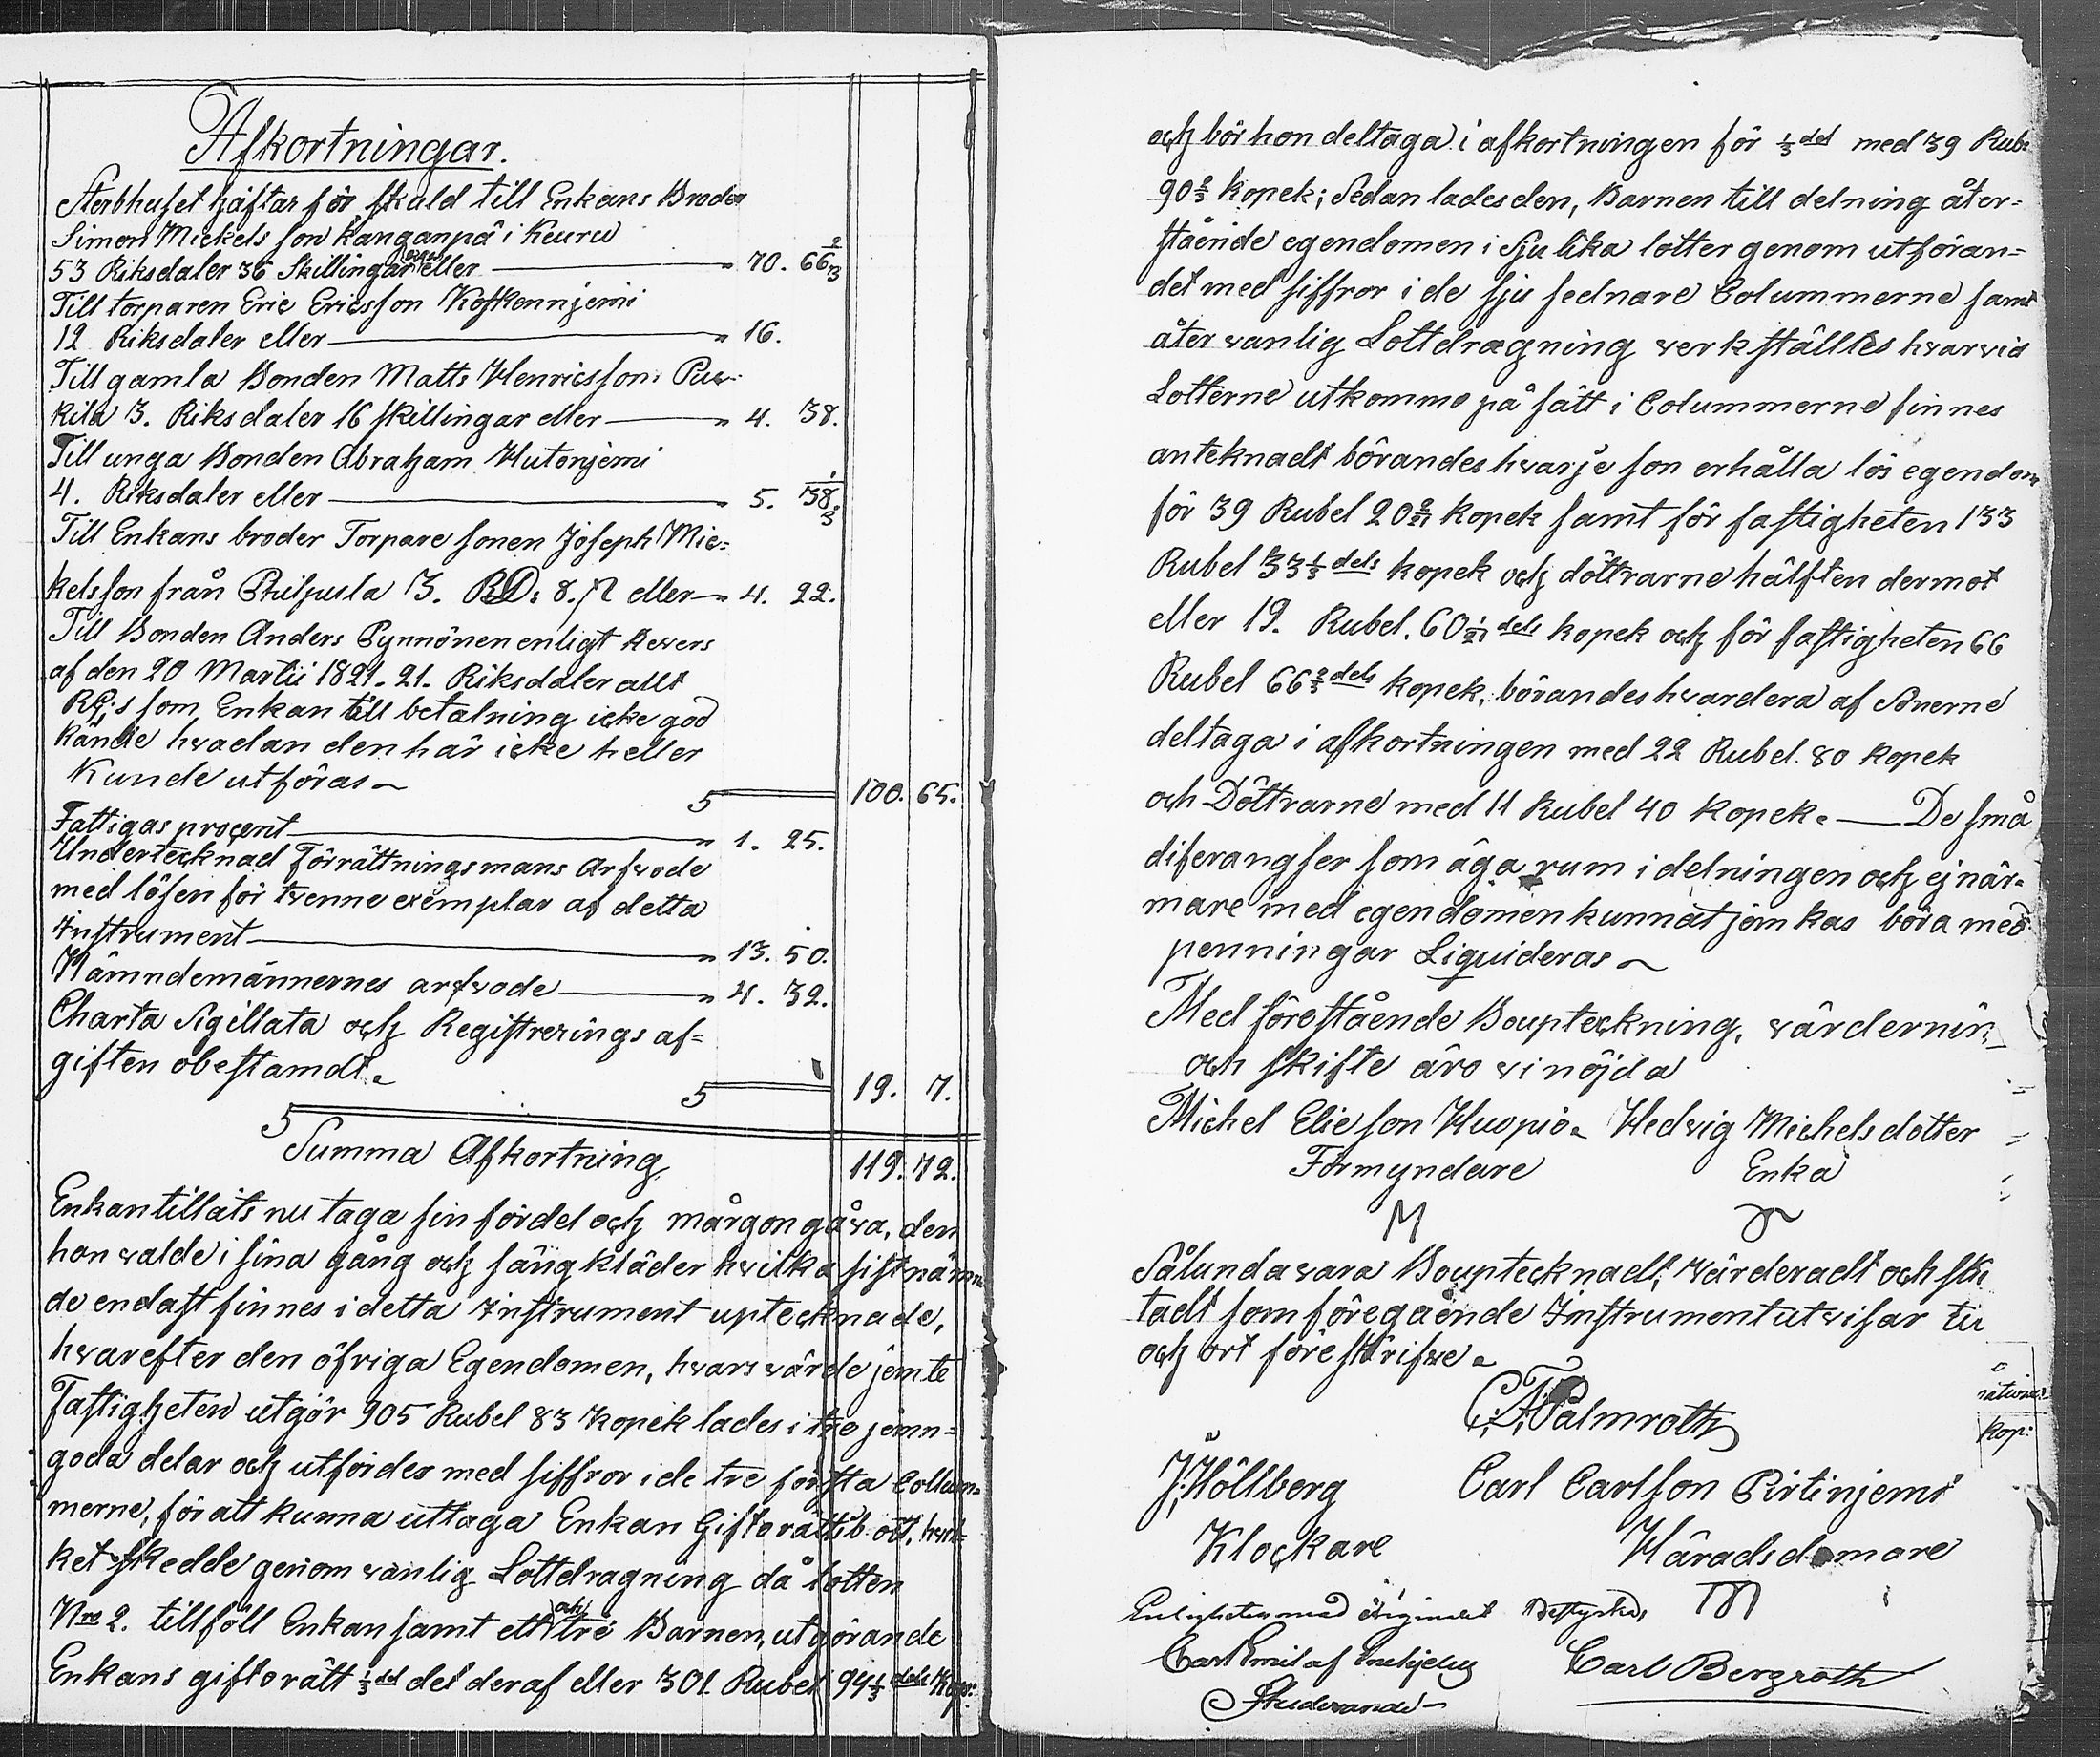 Afkortningar.
Sterbhuset häftar för skuld till Enkans Broder
Simon Mickels son Kanganpä i Keuru
53 Riksdaler 36 Skillingar eller — " 70. 66 2/3
Till torparen Eric Ericsson Koskennjemi
12 Riksdaler eller — " 16.
Till gamla Bonden Matts Henricsson Puu-
kila 3. Riksdaler 16 skillingar eller — " 4. 38.
Till unga Bonden Abraham Hutonjemi
4. Riksdaler eller — " 5. 38 1/3
Till Enkans broder Torpare sonen Joseph Mic=
kelsson från Philpusla 3. RD: 8. β eller — " 4. 22.
Till Bonden Anders Pynnönen enligt Revers
af den 20 Martii 1821. 21. Riksdaler allt
RG:s som Enkan till betalning icke god
kände hvadan den här icke heller
kunde utföras — 100. 65.
Fattigas procent — " 1. 25.
Undertecknad Förrättningsmans Arfvode
med lösen för tvenne exemplar af detta
Instrument — " 13. 50.
Nämndemännernes arfvode — " 4. 32.
Charta Sigillata och Registrerings af=
giften obestamdt. 19. 7.
Summa Afkortning 119. 72.
Enkan tillåts nu taga sin fördel och mårgongåva, den
hon valde i sina gång och sängkläder hvilka sistnäm
de endast finnes i detta Instrument uptecknade,
hvarefter den öfriga Egendomen, hvars värde jemte
Fastigheten utgör 905 Rubel 83 Kopek lades i tre jemn=
goda delar och utfördes med siffror i de tre första Collum=
merne, för att kunna uttaga Enkan Giftorättsb ott, hvil=
ket skedde genom vanlig Lottdragning då lotten
Nro 2. tillföll Enkan samt ett och tre Barnen, utgörande
Enkans giftorätt 1/3 del del deraf eller 301 Rubel 94 1/3 dels Kop:
och bör hon deltaga i afkortningen för 1/3 del med 39 Rub:
90 2/3 kopek; Sedan lades den, Barnen till delning åter=
stående egendomen i Sju lika lotter genom utföran=
det med siffror i de sju sednare Colummerne samt
åter vanlig Lottdragning verkställtes hvarvid
Lotterne utkommo på sätt i Colummerne finnes
anteknadt börandes hvarje son erhålla lös egendom
för 39 Rubel 20 2/21 kopek samt för fastigheten 133
Rubel 33 1/3 dels kopek och döttrarne hälften dermot
eller 19. Rubel. 60 1/21 dels kopek och för fastigheten 66
Rubel 66 2/3 dels kopek, börandes hvardera af Sönerne
deltaga i afkortningen med 22 Rubel. 80 kopek
och Döttrarne med 11 Rubel 40 kopek. — De små
diferangser som äga rum i delningen och ej när=
mare med egendomen kunnat jemkas böra med
penningar Liquideras —
Med förestående Boupteckning, värdernin
och skifte äro vi nöjda
Michel Elieson Huopio. Hedvig Michelsdotter
Förmyndare Enka
Sålunda vara Bouptecknadt, Värderadt och ski
tadt som föregående Instrument utvisar tii
och ort föreskrifwe.
C. F. Palmroth
J. Höllberg Carl Carlsson Pirtinjemi
Klockare Häradsdomare
Enligheten med Originalet Bestyrka,
Carl Emil af Enehjelm Carl Bergroth
Studerande —
kop: